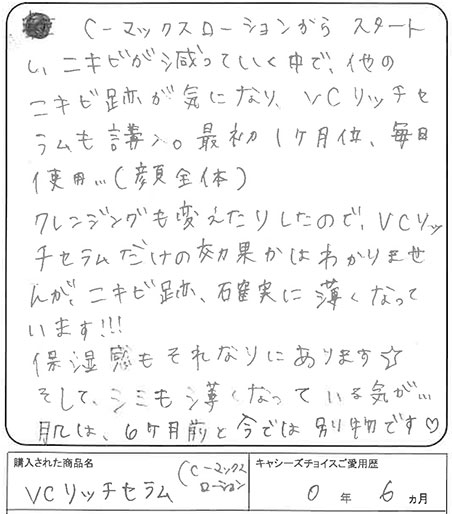 C-マックスローションから スタート
し、ニキビが減っていく中で、他の
ニキビ跡が気になり、VCリッチセ
ラムも講入。最初1ヶ月位、毎日
使用…(顔全体)
クレンジングも変えたりしたので、VCリッ
チセラムだけの効果かはわかりませ
んが、ニキビ跡、確実に薄くなって
います!!!
保湿感もそれなりにあります☆
そして、シミも薄くなっている気が…
肌は、6ヶ月前と今では別物です♡
購入された商品名
VCリッチセラム (C-マックス
ローション
キャシーズチョイスご愛用歴
0 年 6 ヵ月